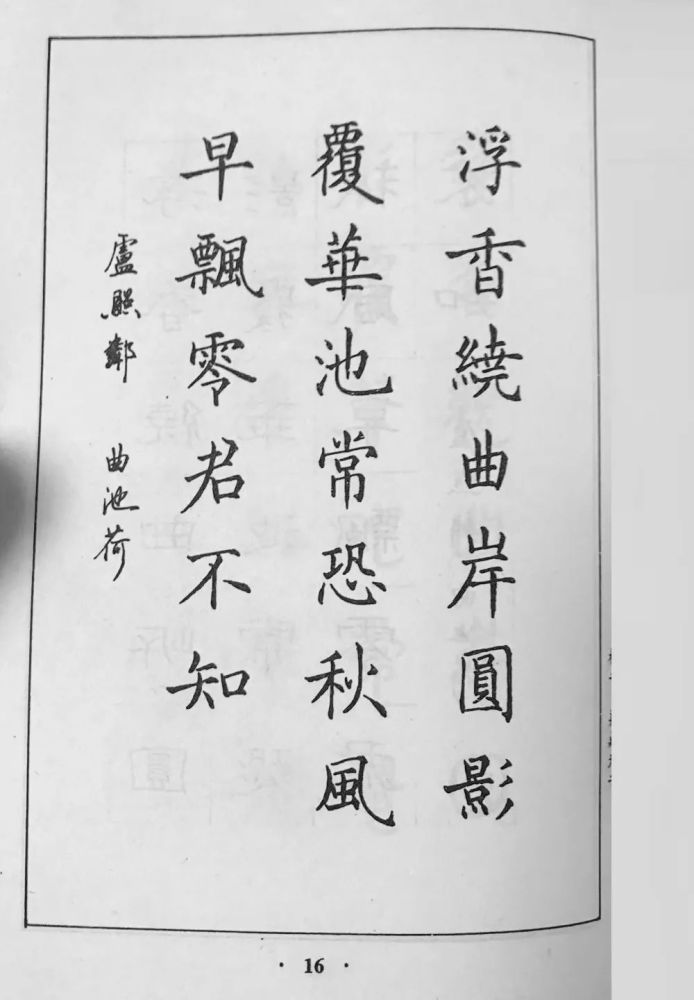 浮香繞曲岸圓影
覆華池常恐秋風
早飄零君不知
盧照鄰 曲池荷
· 16 ·